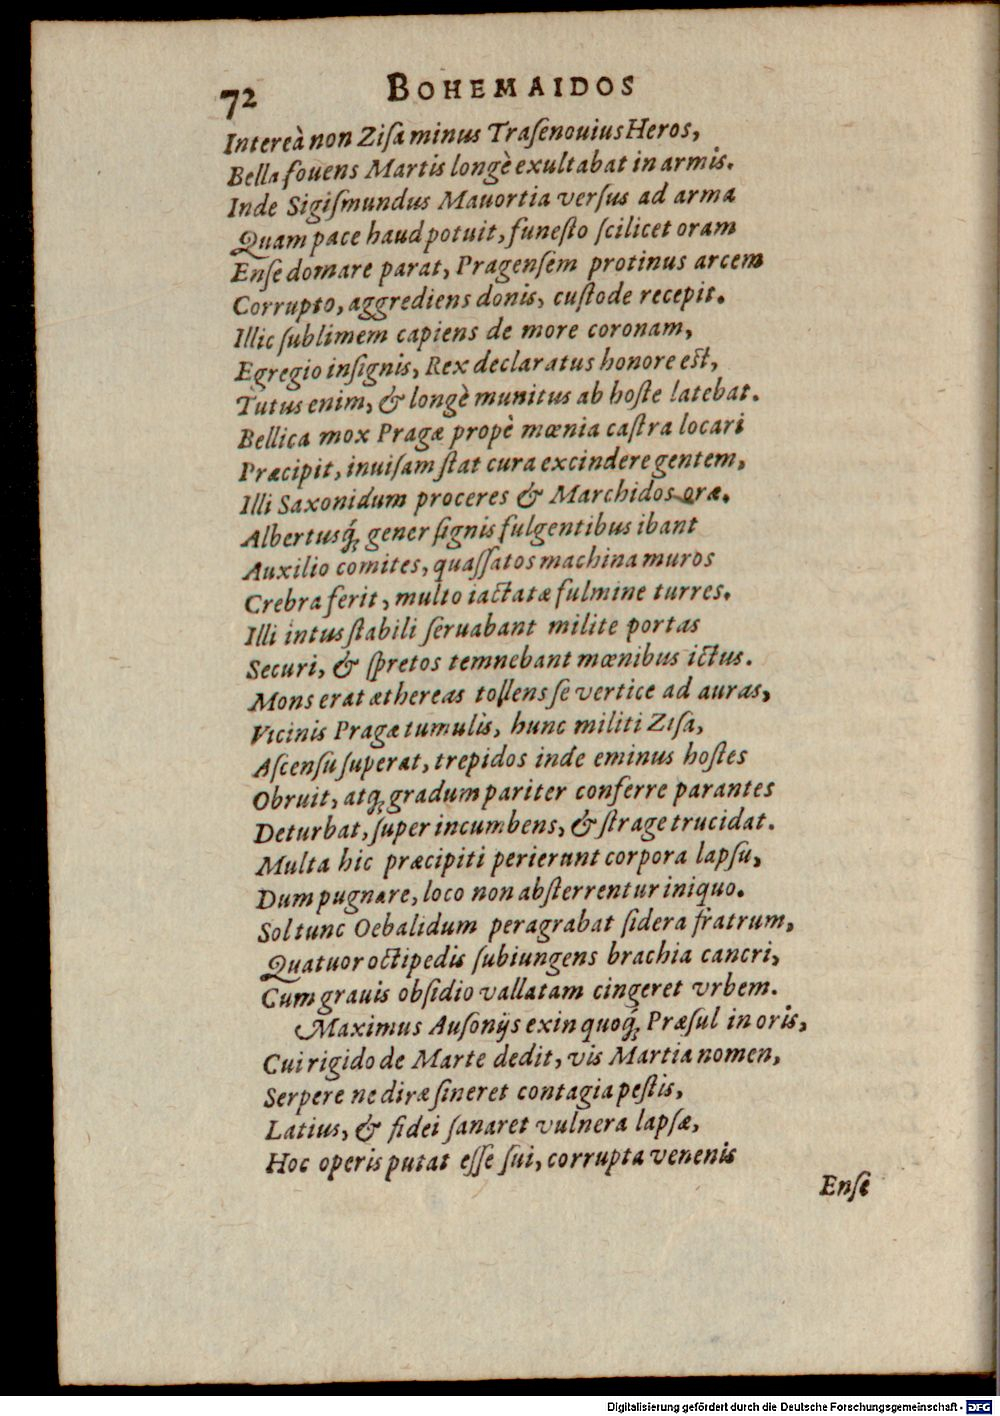 72 BOHEMAIDOS
Intereà non Ziſa minus Traſenouius Heros,
Bella fouens Martis longè exultabat in armis.
Inde Sigiſmundus Mauortia verſus ad arma
Quam pace haud potuit, funeſto ſcilicet oram
Enſe domare parat, Pragenſem protinus arcem
Corrupto, aggrediens donis, cuſtode recepit.
Illic ſublimem capiens de more coronam,
Egregio inſignis, Rex declaratus honore est,
Tutus enim, & longè munitus ab hoſte latebat.
Bellica mox Pragæ propè mœnia caſtra locari
Præcipit, inuiſam ſtat cura excindere gentem,
Illi Saxonidum proceres & Marchidos oræ,
Albertusq́; gener ſignis fulgentibus ibant
Auxilio comites, quaſſatos machina muros
Crebra ferit, multo iactatæ fulmine turres.
Illi intus ſtabili ſeruabant milite portas
Securi, & ſpretos temnebant mœnibus ictus.
Mons erat æthereas tollens ſe vertice ad auras,
Vicinis Pragæ tumulis, hunc militi Ziſa,
Aſcenſu ſuperat, trepidos inde eminus hoſtes
Obruit, atq; gradum pariter conferre parantes
Deturbat, ſuper incumbens, & ſtrage trucidat.
Multa hic præcipiti perierunt corpora lapſu,
Dum pugnare, loco non abſterrentur iniquo.
Sol tunc Oebalidum peragrabat ſidera fratrum,
Quatuor octipedis ſubiungens brachia cancri,
Cum grauis obſidio vallatam cingeret vrbem.
Maximus Auſonijs exin quoq́; Præſul in oris,
Cui rigido de Marte dedit, vis Martia nomen,
Serpere ne diræ ſineret contagia peſtis,
Latius, & fidei ſanaret vulnera lapſæ,
Hoc operis putat eſſe ſui, corrupta venenis
Enſe
Digitalisierung gefördert durch die Deutsche Forschungsgemeinschaft - DFG